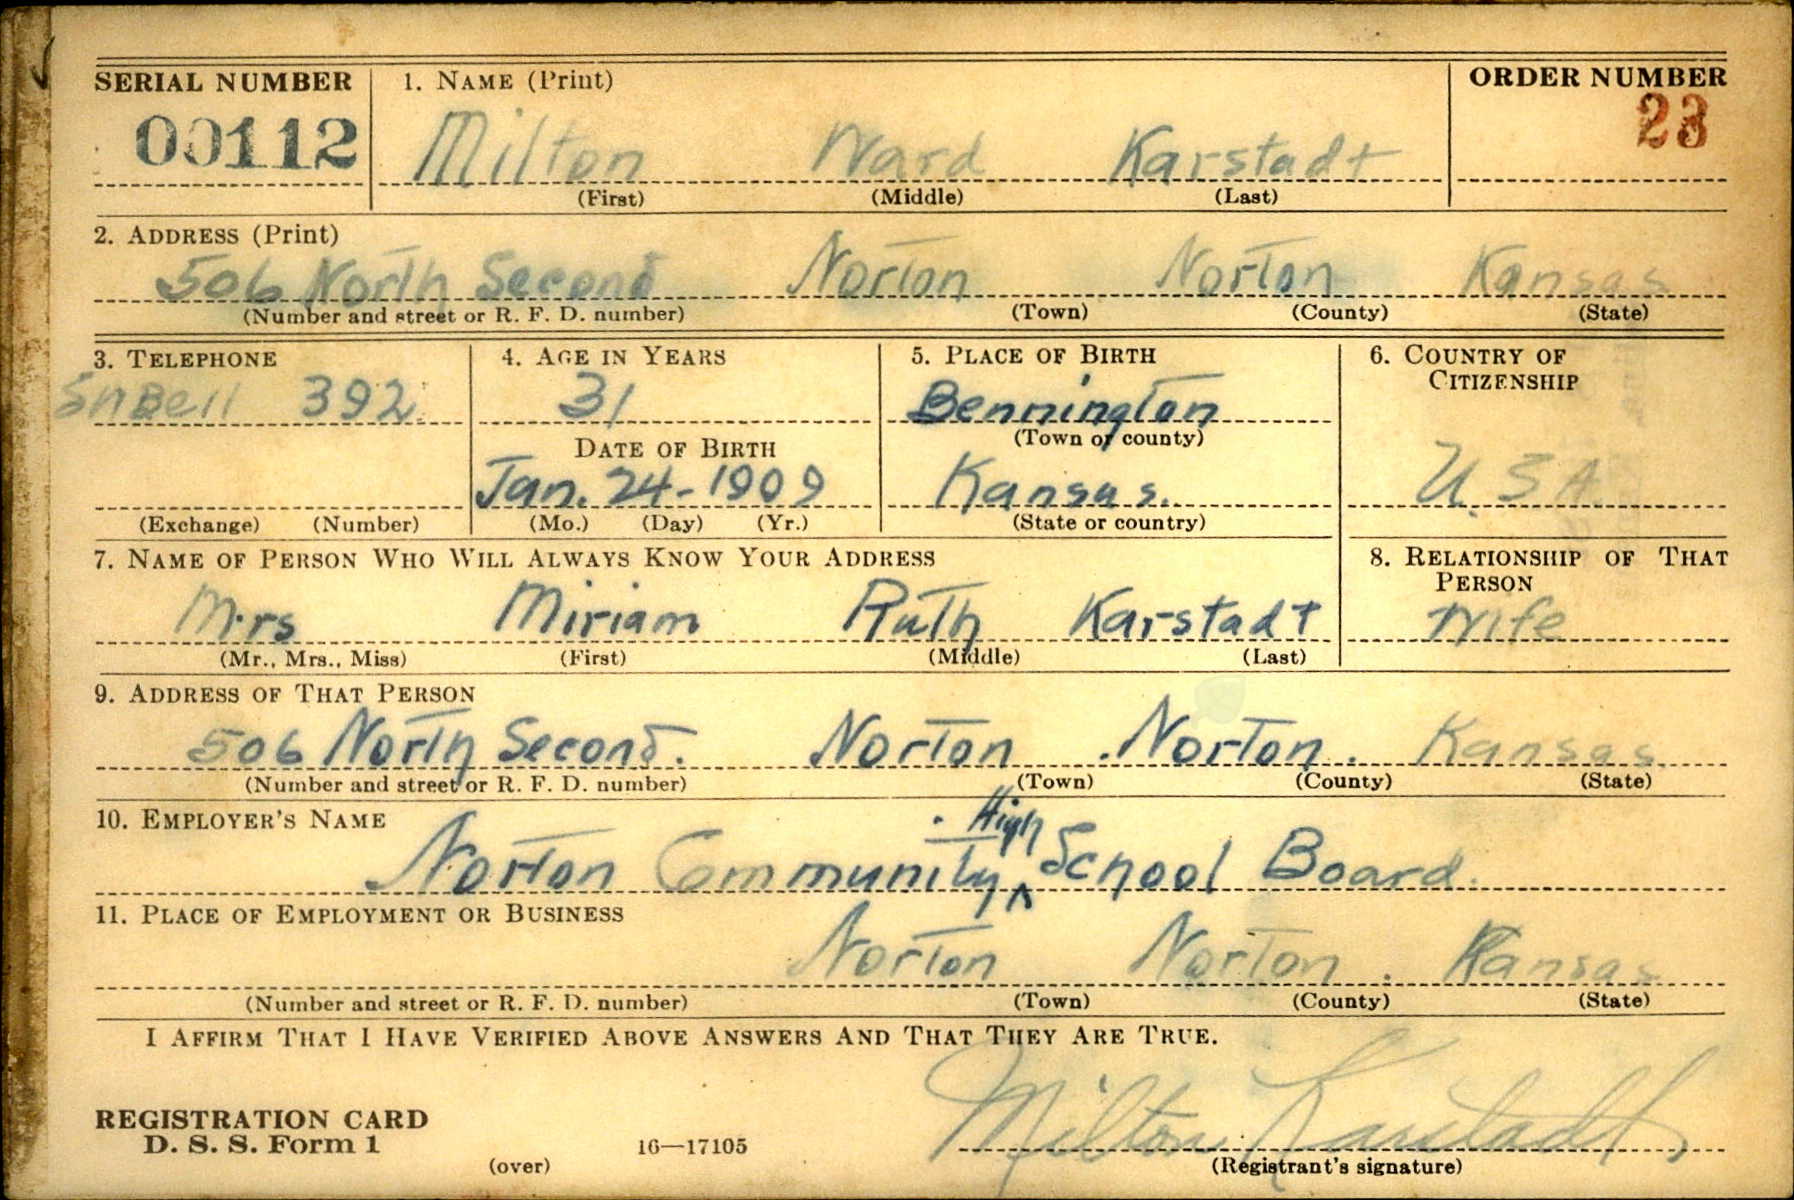 SERIAL NUMBER 1. NAME (Print) ORDER NUMBER
00112 Milton Ward Karstadt 23
(First) (Middle) (Last)
2. ADDRESS (Print)
506 North Second Norton Norton Kansas
(Number and street or R. F. D. number) (Town) (County) (State)
3. TELEPHONE 4. AGE IN YEARS 5. PLACE OF BIRTH 6. COUNTRY OF CITIZENSHIP
392 31 Bennington
(Town or county)
DATE OF BIRTH
Jan. 24-1909 Kansas. U.S.A.
(Exchange) (Number) (Mo.) (Day) (Yr.) (State or country)
7. NAME OF PERSON WHO WILL ALWAYS KNOW YOUR ADDRESS 8. RELATIONSHIP OF THAT PERSON
Mrs Miriam Ruth Karstadt Wife
(Mr., Mrs., Miss) (First) (Middle) (Last)
9. ADDRESS OF THAT PERSON
506 North Second. Norton Norton. Kansas
(Number and street or R. F. D. number) (Town) (County) (State)
10. EMPLOYER'S NAME
Norton Community High School Board.
11. PLACE OF EMPLOYMENT OR BUSINESS
Norton Norton. Kansas
(Number and street or R. F. D. number) (Town) (County) (State)
I AFFIRM THAT I HAVE VERIFIED ABOVE ANSWERS AND THAT THEY ARE TRUE.
Milton Karstadt
REGISTRATION CARD
D. S. S. Form 1 16—17105
(over) (Registrant's signature)